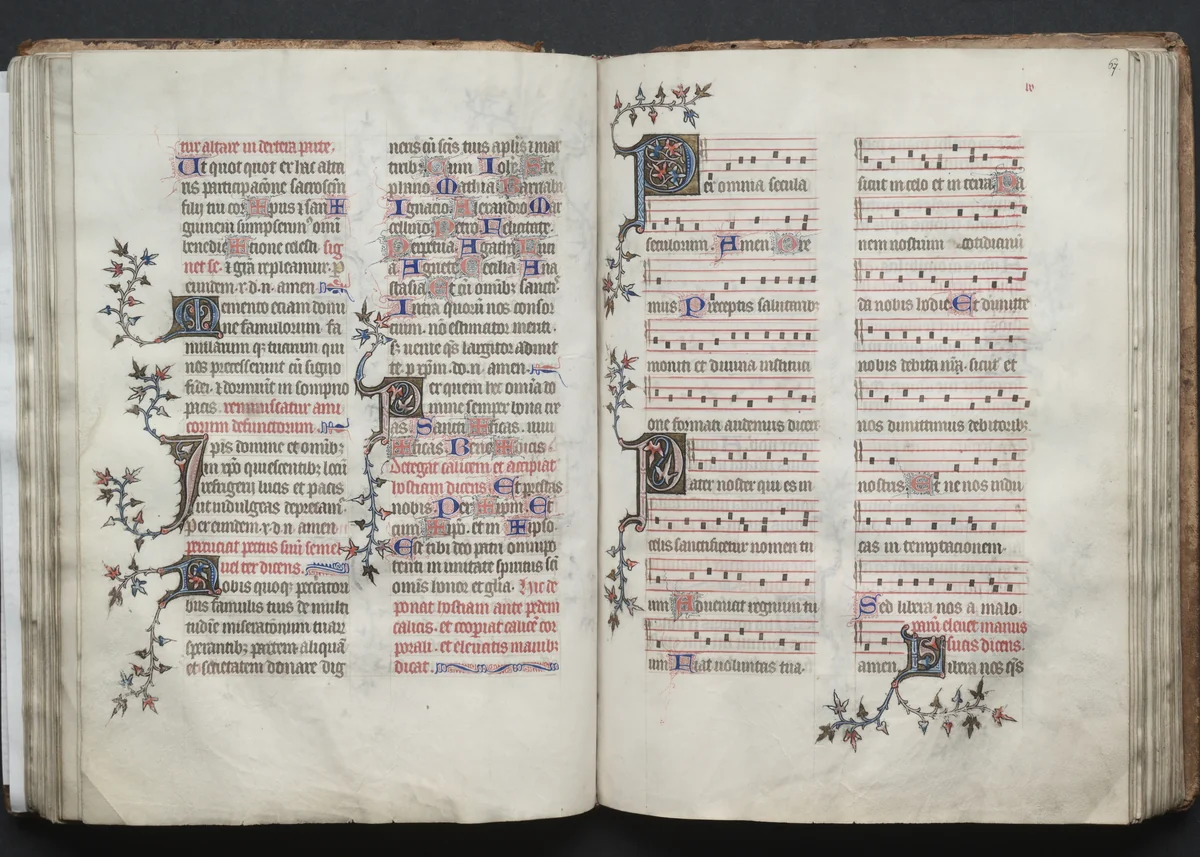 tur altare in dextera parte.
Ut quot quot ex hac alta
ris participacōne sacroscīn
filij tui cor✠pus ⁊ san✠
guinem sumpserim⁹ omī
benedic✠tione celesti sig
net se. ⁊ grā repleamur. p
eundem .x. d. n. amen
Memento eciam domi
ne famulorum fa
mularum qȝ tuarum qui
nos precesserunt cū signo
fidei. ⁊ dormiūt in sompno
pacis. reminiscatur ami
corum defunctorum.
Ipis domine et omībȝ
in xpō quiescentibȝ locū
refrigerij lucis et pacis
ut indulgeas deprecam̄.
per eundem .x. d. n. amen
percuciat pectus suū semel
uel ter dicens.
Nobis quoqȝ peccatori
bus famulis tuis de multi
tudīe miserationum tuar
sperantibȝ partem aliquā
et societatem donare dig
neris cū scīs tuis aplīs ⁊ mar
tiribȝ. Cum Iohe. Ste
phano. Mathia. Barnaba
Ignacio. Alexandro. Mar
cellino. Petro. Felicitate.
Perpetua. Agatha. Luci
a. Agnete. Cecilia. Ana
stasia. Et cū omībȝ sanctis
Intra quorū nos consor
cium. nō estimator meriti.
sȝ uenie qs largitor admit
te. p xpm. do. n. amen.
Per quem hec omīa do
mine semper bona cre
as. Sancti✠ficas. uiui
✠ficas. Bene✠dicis.
Detegat calicem et accipiat
hostiam dicens. Et prestas
nobis. Per ✠ipm. Et
cum ✠ipō. et in ✠ipso.
Est tibi deo patri omnipo
tenti in unitate spiritus scī
omīs honor et glīa. Hic de
ponat hostiam ante pedem
calicis. et cooperiat calicē cor
porali. et eleuatis manibȝ
dicat.
67
iv
Per omnia secula
seculorum. Amen. Ore
mus. Preceptis salutaribȝ
moniti et diuina instituti
one formati audemus dicere
Pater noster qui es in
celis sanctificetur nomen tu
um. Adueniat regnum tu
um. Fiat uoluntas tua.
sicut in celo et in terra. Pa
nem nostrum cotidianū
da nobis hodie. Et dimitte
nobis debita nrā. sicut et
nos dimittimus debitoribȝ
nostris. Et ne nos indu
cas in temptacionem.
Sed libera nos a malo.
parū eleuet manus
suas dicens.
amen. Libera nos qs